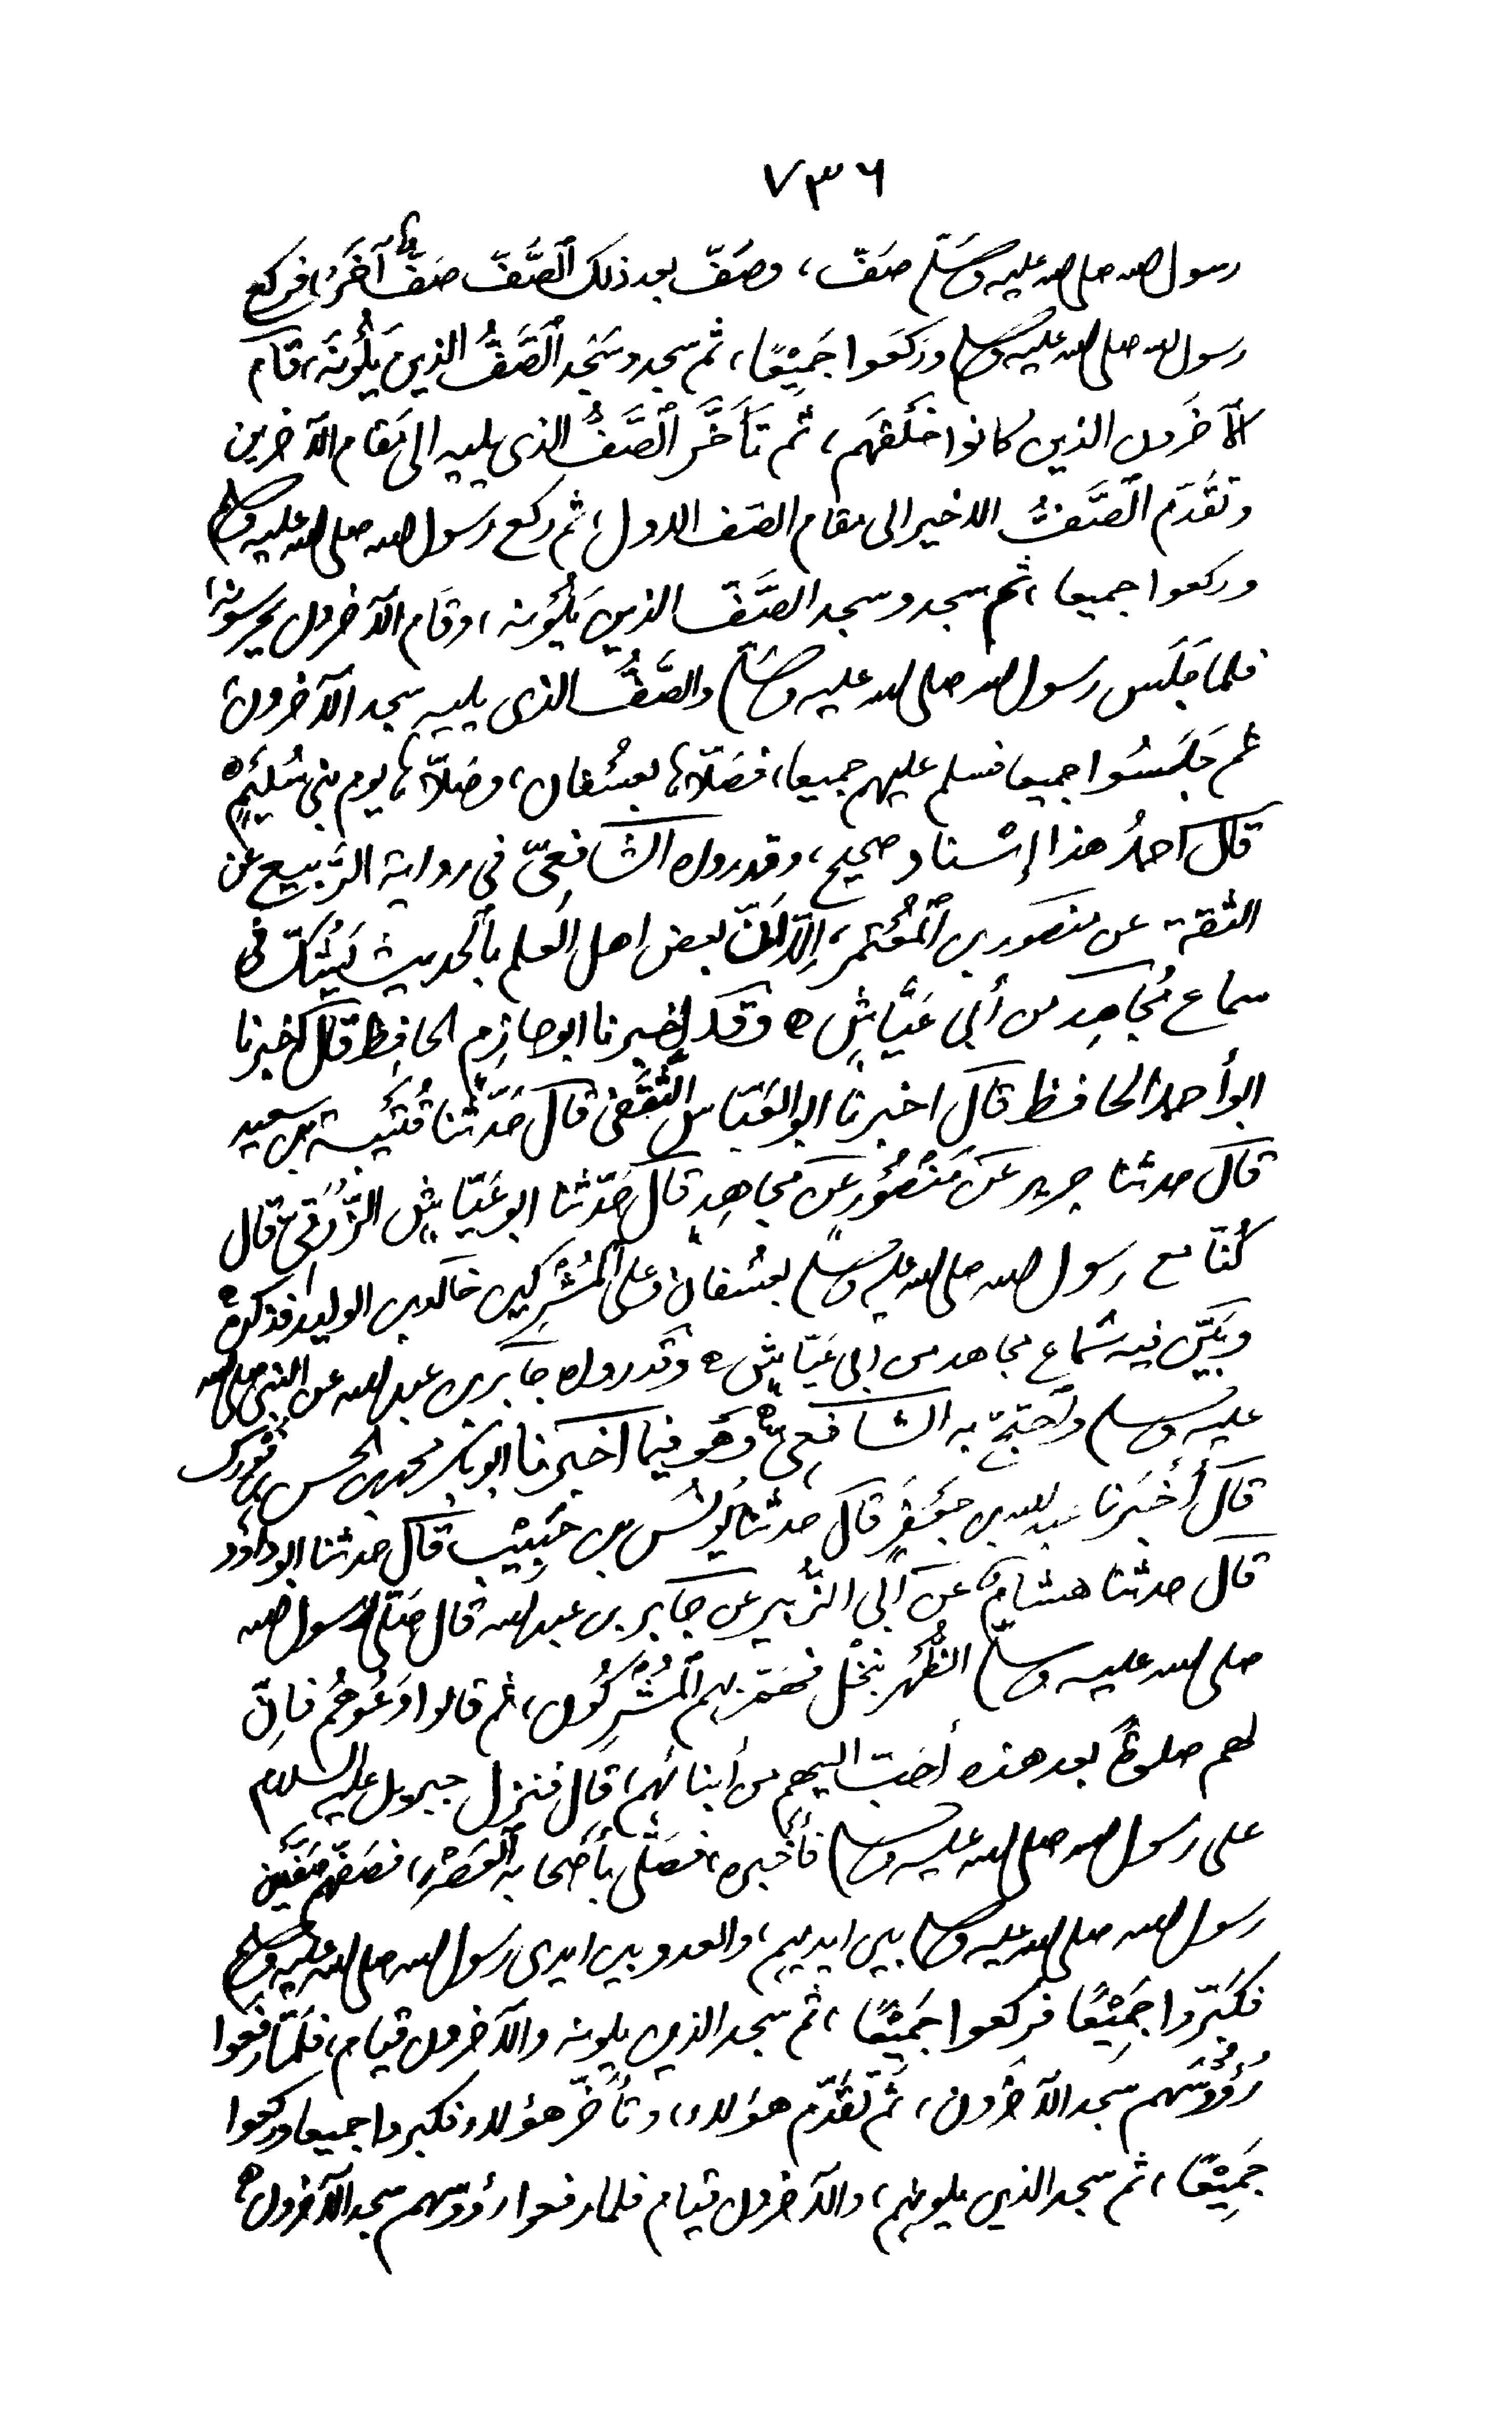 ٧٣٦
رسول الله صلى الله عليه وسلّم صَفّ، وصَفّ بعد ذلك الصَّفّ صَفٌّ آخَرُ، فركع
رسول الله صلى الله عليه وسلم وركَعوا جَمِيْعًا، ثم سجد وسَجَد الصَّفُّ الذين يَلُونَه، قام
الآخَرون الذين كانوا خَلْفَهم، ثم تَأَخَّر الصَّفُّ الذى يليه الى مَقام الآخرين
وتقَدّم الصَّفُّ الاخير الى مقام الصَف الاول، ثم ركع رسول الله صلى الله عليه وسلم
وركعوا جميعا، ثم سجد وسجد الصَّفّ الذين يَلُوْنه، وقَام الآخرون يحرسونه،
فلما جَلَس رسول الله صلى الله عليه وسلّم والصَّفُّ الذى يليه سجد الآخرون،
ثم جَلَسُوا جميعا فسلم عليهم جميعا، فصَلّاها بعسُفان، وصَلّاها يوم بنى سُلَيْمٍ ه
قال احمدُ هذا إسْناد صحيح، وقد رواه الشافعىّ فى رواية الرَّبيع عن
الثقة عن منصور بن المُعْتمر، إلّا أنّ بعض اهل العلم بالحديث يَشُكّ فى
سماع مُجاهِد من أبى عَيَّاشٍ ه وقَد اخبرنا ابو حازم الحافِظ قال اخبرنا
ابو أحمد الحافظ قال اخبرنا ابو العَبّاس الثَّقَفى قال حَدّثنا قُتَيْبة بن سعيد
قال حدثنا جرير عَن مَنْصُوْرٍ عَن مجاهِدٍ قال حَدّثنا ابو عَيّاشٍ الزُّرَقى قال
كُنّا مع رسول الله صلى الله عليه وسلم بعسُفان وعلى المُشْرِكين خالد بن الوليد فذكره ه
وبَيّن فيه سَماع مجاهد من ابى عَيّاشٍ ه وقد رواه جابر بن عبد الله عن النبى صلى الله
عليه وسلم واحتجّ به الشافِعىّ ه وهُو فيما اخبَرنا ابو بكر محمد بن الحسن بن فُوْرك
قال أخْبَرنا عبد الله بن جَعْفَرٍ قال حدثنا يُونُس بن حَبِيْبٍ قال حدثنا ابو داوُد
قال حدثنا هشام عن أبى الزُّبير عن جابر بن عبد الله قال صَلّى رسول الله
صلى الله عليه وسلم الظُّهْر بنَخْل فهَمّ بهم المُشْرِكُون، ثم قالوا دَعُوهُم فاِنّ
لهم صلوةً بعد هذه أحَبّ اليهم من أبنائهم، قال فنزل جبريل عليه السلام
على رَسول الله صلى الله عليه وسلم فأخبره، فصَلّى بأصْحابه العَصْر، فصَفّهم صَفَّيْن
رسول الله صلى الله عليه وسلم بين ايديهم، والعدو بين ايدى رَسول الله صلى الله عليه وسلم
فكَبّروا جَمِيْعًا فركعوا جَمِيْعًا، ثم سجد الذين يلونه والآخرون قيام، فلَمّا رفَعوا
رُؤُوْسَهم سَجَد الآخَرون، ثُم تقَدّم هؤلاء، وتأخّر هؤلاء فكبروا جميعا وركعوا
جَمِيْعًا، ثم سجد الذين يلونهم، والآخرون قيام فلما رفعوا رؤوسهم سجد الآخرون ه